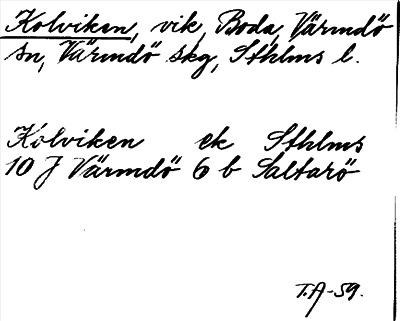 Kolviken, vik, Boda, Värmdö
sn, Värmdö skg, Sthlms l.
Kolviken ek Sthlms
10 J Värmdö 6 b Saltarö
T.A-59.